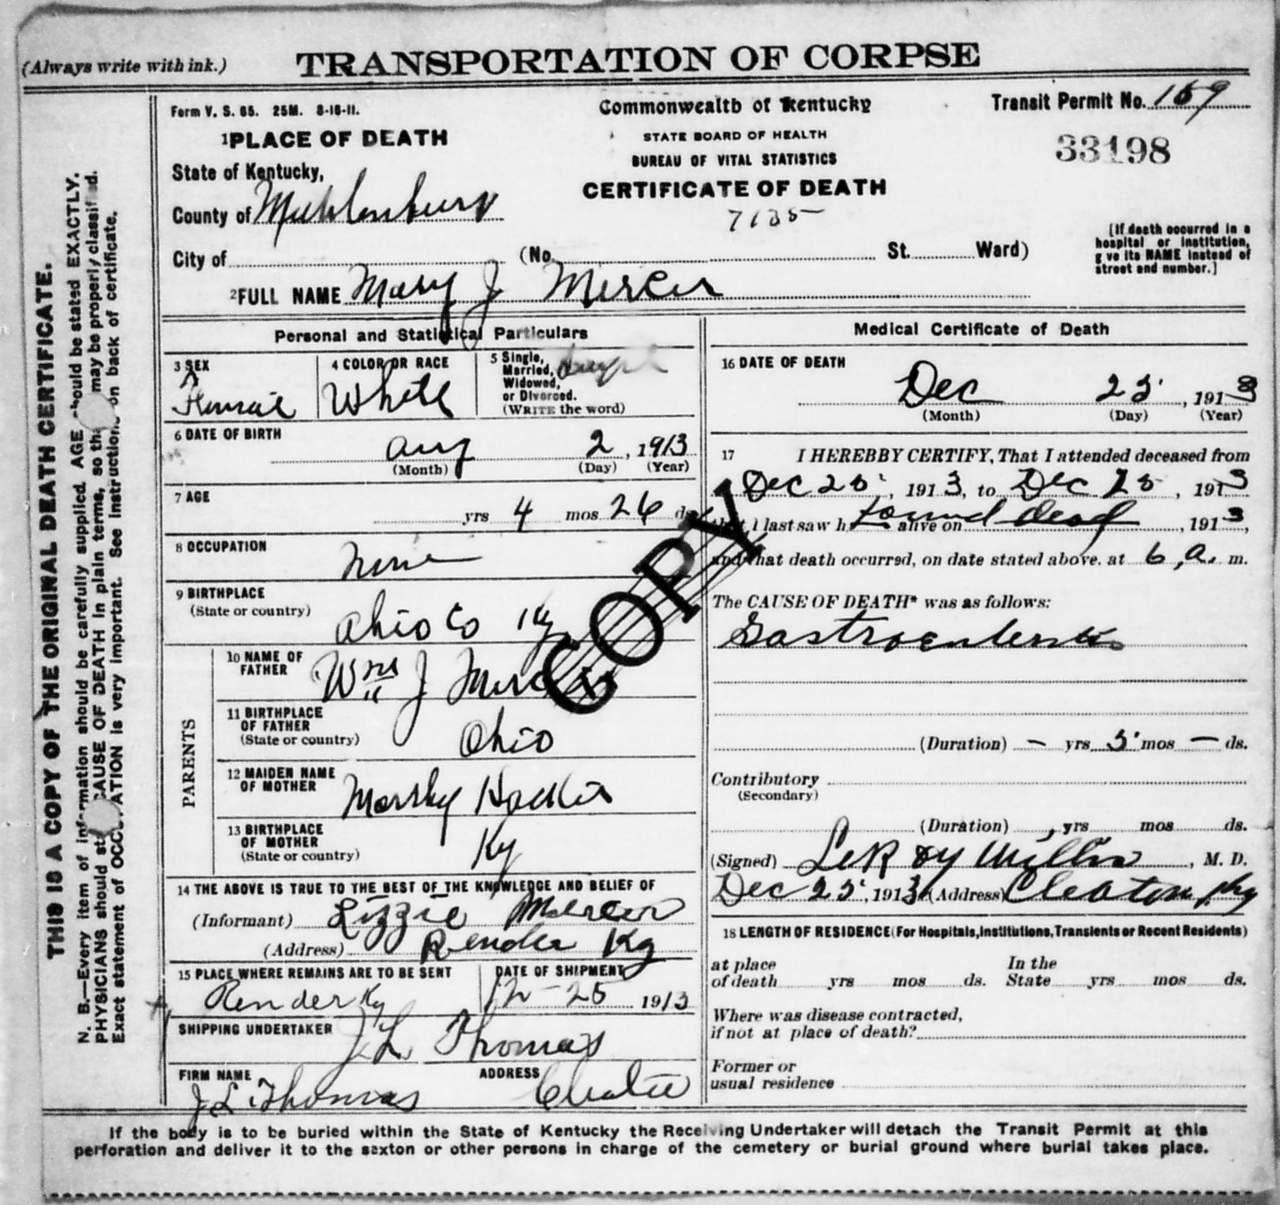 (Always write with ink.)
TRANSPORTATION OF CORPSE
THIS IS A COPY OF THE ORIGINAL DEATH CERTIFICATE.
N. B.—Every item of information should be carefully supplied. AGE should be stated EXACTLY.
PHYSICIANS should state CAUSE OF DEATH in plain terms, so that may be properly classified.
Exact statement of OCCUPATION is very important. See Instructions on back of certificate.
Form V. S. 65. 25M. 8-16-11.
Commonwealth of Kentucky
Transit Permit No. 169
STATE BOARD OF HEALTH
BUREAU OF VITAL STATISTICS
CERTIFICATE OF DEATH
33198
7135
1 PLACE OF DEATH
State of Kentucky,
County of Muhlenburg
City of (No. St. Ward)
[If death occurred in a
hospital or institution,
give its NAME instead of
street and number.]
2 FULL NAME Mary J Mercer
Personal and Statistical Particulars
3 SEX Female
4 COLOR OR RACE White
5 Single,
Married,
Widowed,
or Divorced.
(WRITE the word)
6 DATE OF BIRTH Aug 2, 1913
(Month) (Day) (Year)
7 AGE yrs 4 mos 26 ds
8 OCCUPATION None
9 BIRTHPLACE
(State or country) Ohio Co Ky
PARENTS
10 NAME OF
FATHER Wm J
11 BIRTHPLACE
OF FATHER
(State or country) Ohio
12 MAIDEN NAME
OF MOTHER
13 BIRTHPLACE
OF MOTHER
(State or country) Ky
14 THE ABOVE IS TRUE TO THE BEST OF THE KNOWLEDGE AND BELIEF OF
(Informant) Lizzie Mercer
(Address) Render Ky
15 PLACE WHERE REMAINS ARE TO BE SENT Render Ky
DATE OF SHIPMENT 12-25 1913
SHIPPING UNDERTAKER J L Thomas
FIRM NAME J L Thomas
ADDRESS
COPY
Medical Certificate of Death
16 DATE OF DEATH
Dec 25, 1913
(Month) (Day) (Year)
17 I HEREBY CERTIFY, That I attended deceased from
Dec 25, 1913, to Dec 25, 1913
that I last saw h found dead alive on , 1913,
and that death occurred, on date stated above, at 6, a. m.
The CAUSE OF DEATH* was as follows:
(Duration) — yrs 5 mos — ds.
Contributory
(Secondary)
(Duration) yrs mos ds.
(Signed) LeRoy , M. D.
Dec 25, 1913 (Address) Cleaton, Ky
18 LENGTH OF RESIDENCE (For Hospitals, Institutions, Transients or Recent Residents)
at place
of death yrs mos ds.
In the
State yrs mos ds.
Where was disease contracted,
if not at place of death?
Former or
usual residence
If the body is to be buried within the State of Kentucky the Receiving Undertaker will detach the Transit Permit at this
perforation and deliver it to the sexton or other persons in charge of the cemetery or burial ground where burial takes place.